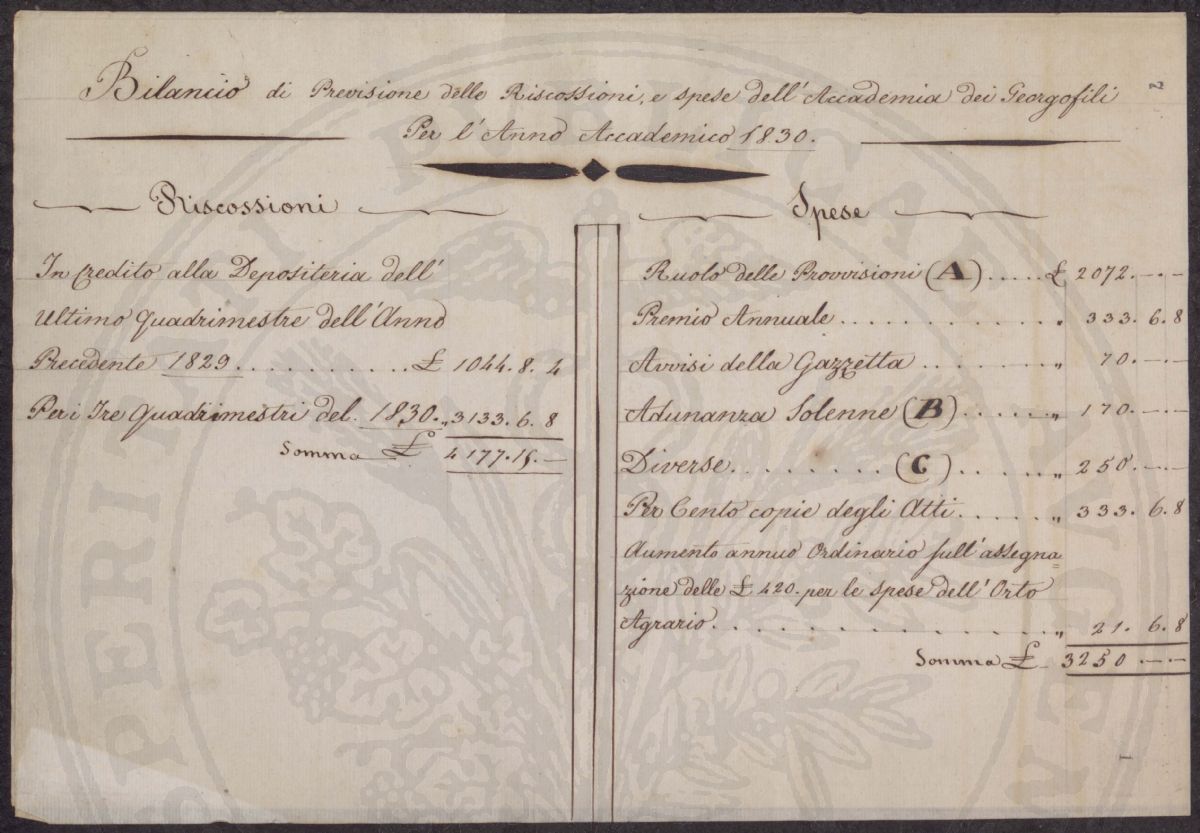 Bilancio di Previsione delle Riscossioni, e spese dell'Accademia dei Georgofili
Per l'Anno Accademico 1830.
Riscossioni
In Credito alla Depositeria dell'
Ultimo Quadrimestre dell'Anno
Precedente 1829.......... £ 1044. 8. 4
Per i Tre Quadrimestri del. 1830. „ 3133. 6. 8
Somma £ 4177. 15. —
Spese
Ruolo delle Provvisioni (A)..... £ 2072. — . —
Premio Annuale............. „ 333. 6. 8
Avvisi della Gazzetta........ „ 70. — . —
Adunanza Solenne (B)...... „ 170. — . —
Diverse........ (C)...... „ 250. — . —
Per Cento copie degli Atti...... „ 333. 6. 8
Aumento annuo Ordinario sull'assegna=
zione delle £ 420. per le spese dell'Orto
Agrario............... „ 21. 6. 8
Somma £ 3250 — . —
2
1